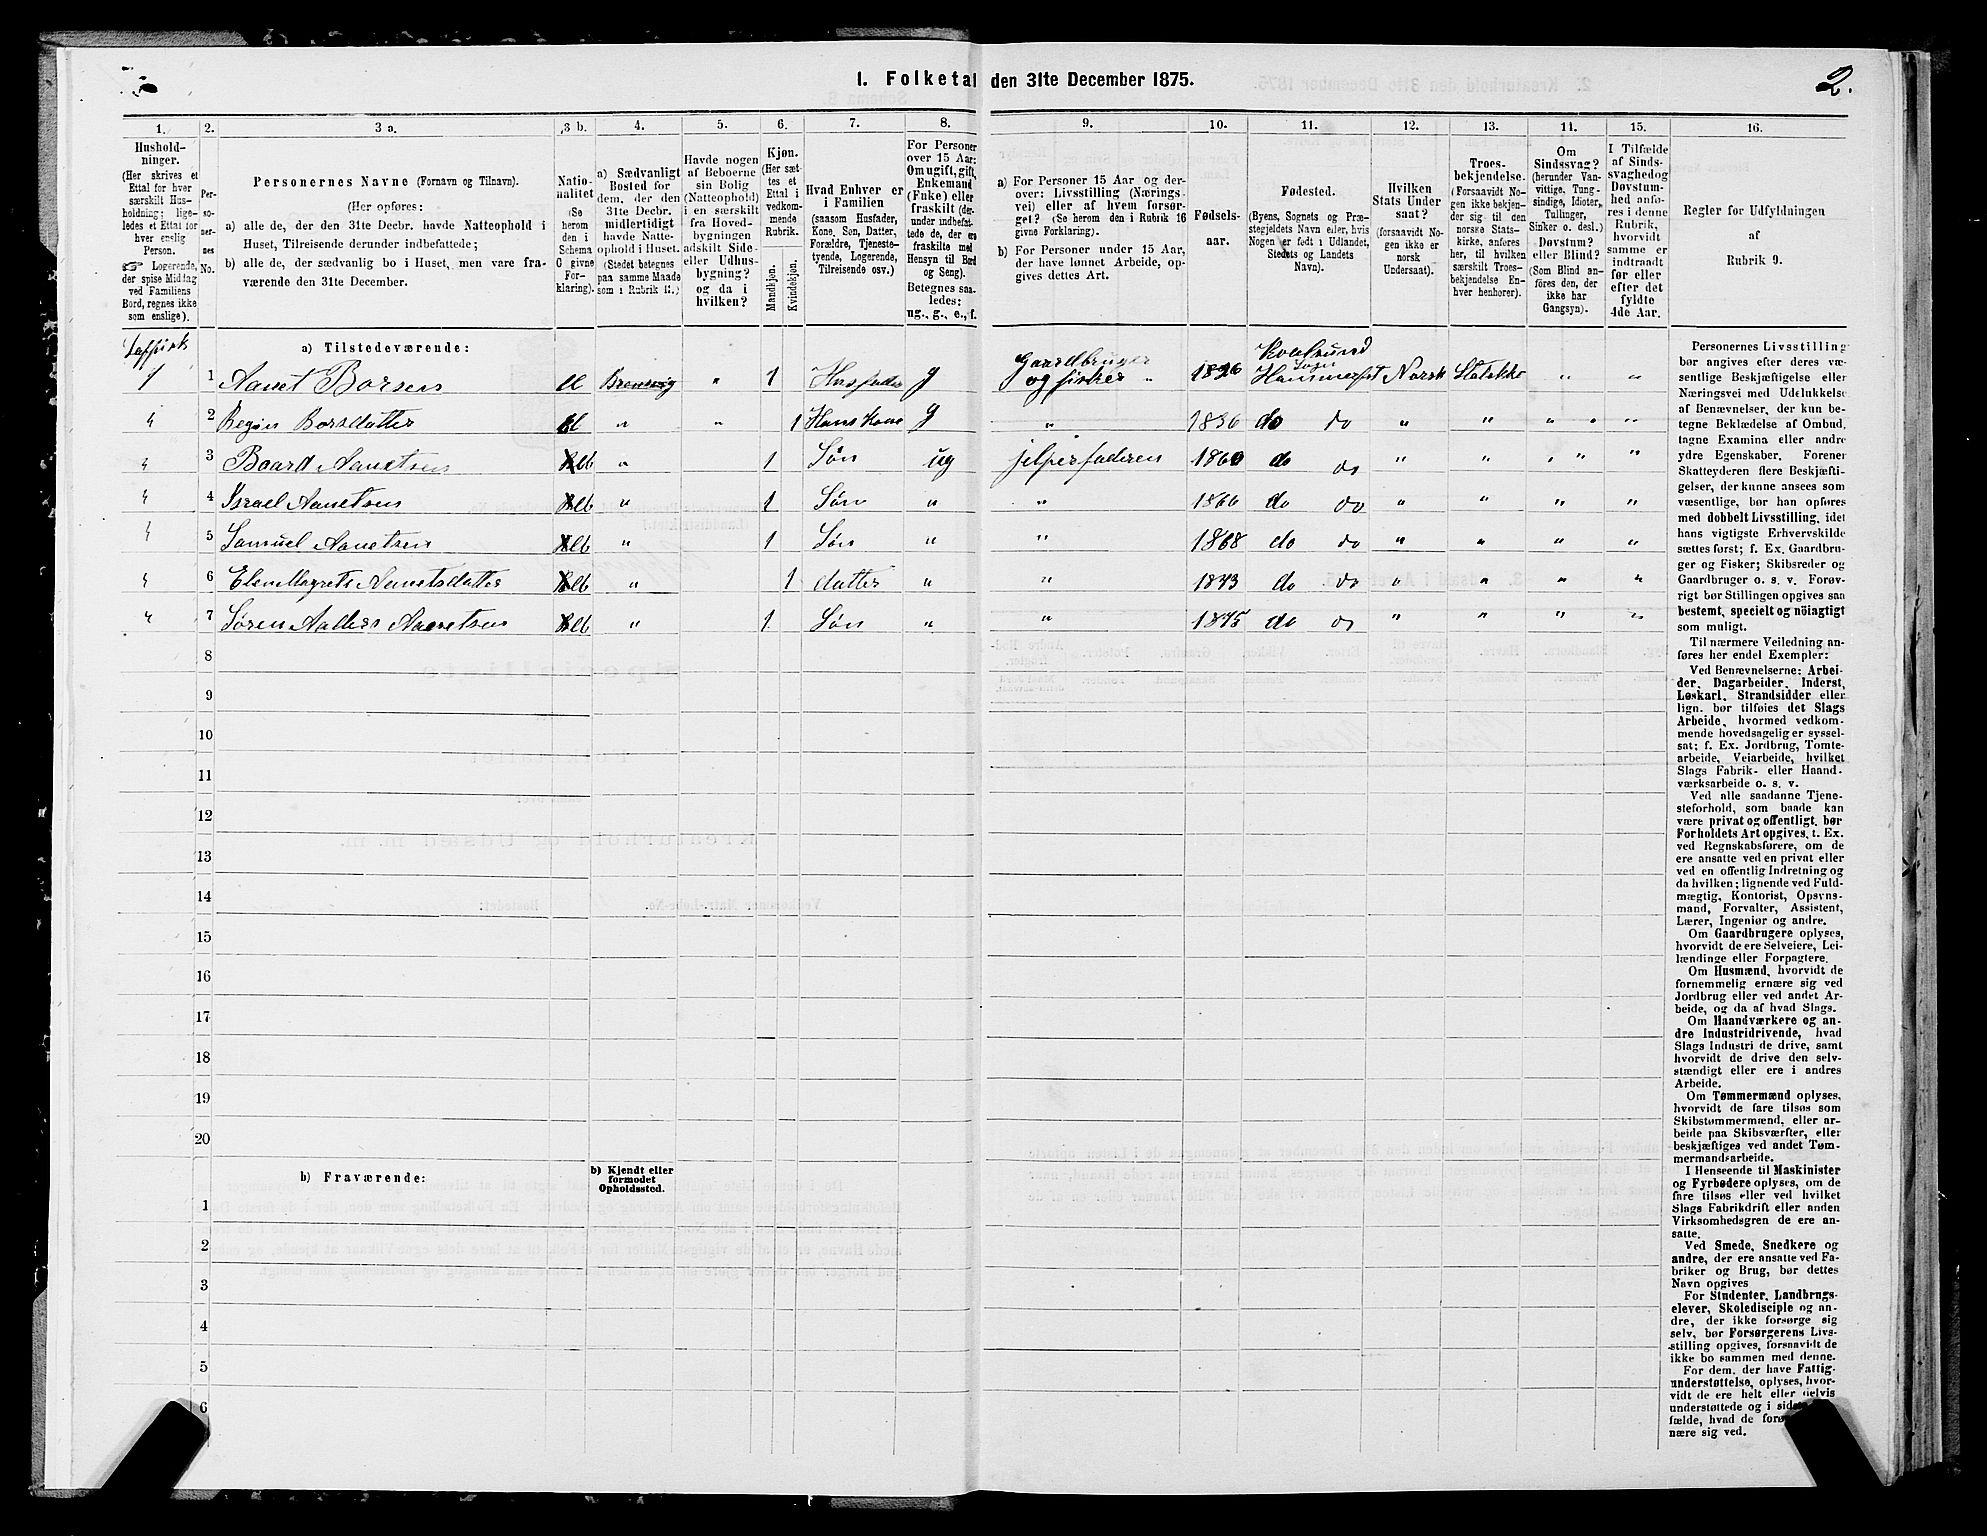 2.
1. Folketal den 31te December 1875.
1.
Hushold-
ninger.
(Her skrives et
Ettal for hver
særskilt Hus-
holdning; lige-
ledes et Ettal for
hver enslig
Person.
Logerende,
der spise Middag
ved Familiens
Bord, regnes ikke
som enslige).
2.
Per-
so-
ner-
nes
No.
3 a.
Personernes Navne (Fornavn og Tilnavn).
(Her opføres:
a) alle de, der den 31te Decbr. havde Natteophold i
Huset, Tilreisende derunder indbefattede;
b) alle de, der sædvanlig bo i Huset, men vare fra-
værende den 31te December.
3 b.
Natio-
nalitet
(Se
herom
den i
Schema
6 givne
For-
klaring).
4.
a) Sædvanligt
Bosted for
dem, der den
31te Decbr.
midlertidigt
havde Natte-
ophold i Huset.
(Stedet betegnes
paa samme Maade
som i Rubrik 11.)
5.
Havde nogen
af Beboerne
sin Bolig
(Natteophold)
i en særskilt
fra Hoved-
bygningen
adskilt Side-
eller Udhus-
bygning?
og da i
hvilken?
6.
Kjøn.
(Her sæt-
tes et
Ettal i
vedkom-
mende
Rubrik.
Mandkjøn.
Kvindekjøn.
7.
Hvad Enhver er
i Familien
(saasom Husfader,
Kone, Søn, Datter,
Forældre, Tjeneste-
tyende, Logerende,
Tilreisende osv.)
8.
For Personer
over 15 Aar:
Om ugift, gift,
Enkemand
(Enke) eller
fraskilt (der-
under indbefat-
tede de, der ere
fraskilte med
Hensyn til Bord
og Seng).
Betegnes saa-
ledes:
ug., g., e., f.
9.
a) For Personer 15 Aar og der-
over: Livsstilling (Nærings-
vei) eller af hvem forsør-
get? (Se herom den i Rubrik 16
givne Forklaring).
b) For Personer under 15 Aar,
der have lønnet Arbeide, op-
gives dettes Art.
10.
Fødsels-
aar.
11.
Fødested.
(Byens, Sognets og Præ-
stegjeldets Navn eller, hvis
Nogen er født i Udlandet,
Stedets og Landets
Navn).
12.
Hvilken
Stats Under
saat?
(forsaavidt No-
gen ikke er
norsk
Undersaat).
13.
Troes-
bekjendelse.
(Forsaavidt No-
gen ikke bekjen-
der sig til den
norske Stats-
kirke, anføres
her, til hvilken
særskilt Troes-
bekjendelse En-
hver henhører).
14.
Om
Sindssvag?
(herunder Van-
vittige, Tung-
sindige, Idioter,
Tullinger,
Sinker o. desl.)
Døvstum?
eller Blind?
(Som Blind an-
føres den, der
ikke har
Gangsyn).
15.
I Tilfælde
af Sinds-
svaghed og
Døvstum-
hed anfø-
res i denne
Rubrik,
hvorvidt
samme er
indtraadt
før eller
efter det
fyldte
4de Aar.
16.
Regler for Udfyldningen
af
Rubrik 9.
a) Tilstedeværende:
1 1 Aanet Borsen " 1 Husfader g Gaardbruger og fisker " 1826 Hammerfest Norsk
" 2 Regin Borsdatter " " 1 Hans Kone g " 1836 do do " " " " "
" 3 Baard Aanetsen " 1 Søn ug jelper faderen 1860 do do " " " " "
" 4 Israel Aanetsen " 1 Søn " " 1866 do do " " " "
" 5 Samuel Aanetsen " 1 Søn " " 1868 do do " " " "
" 6 Elen Magrete Aanetsdatter " 1 datter " " 1873 do do " " " "
" 7 Søren Aanetsen " 1 Søn " " 1875 do do " " " "
8
9
10
11
12
13
14
15
16
17
18
19
20
b) Fraværende:
b) Kjendt eller
formodet
Opholdssted.
1
2
3
4
5
6
Personernes Livsstilling
bør angives efter deres væ-
sentlige Beskjæftigelse eller
Næringsvei med Udelukkelse
af Benævnelser, der kun be-
tegne Beklædelse af Ombud,
tagne Examina eller andre
ydre Egenskaber. Forener
Skatteyderen flere Beskjæfti-
gelser, der kunne ansees som
væsentlige, bør han opføres
med dobbelt Livsstilling, idet
hans vigtigste Erhvervskilde
sættes først; f. Ex. Gaardbru-
ger og Fisker; Skibsreder og
Gaardbruger o. s. v. Forøv-
rigt bør Stillingen opgives saa
bestemt, specielt og nöiagtigt
som muligt.
Til nærmere Veiledning an-
føres her endel Exempler:
Ved Benævnelserne: Arbei-
der, Dagarbeider, Inderst,
Løskarl, Strandsidder eller
lign. bør tilføies det Slags
Arbeide, hvormed vedkom-
mende hovedsagelig er syssel-
sat; f. Ex. Jordbrug, Tomte-
arbeide, Veiarbeide, hvilket
Slags Fabrik- eller Haand-
værksarbeide o. s. v.
Ved alle saadanne Tjene-
steforhold, som baade kan
være privat og offentligt, bør
Forholdets Art opgives, t. Ex.
ved Regnskabsførere, om de
ere ansatte ved en privat eller
ved en offentlig Indretning og
da hvilken; lignende ved Fuld-
mægtig, Kontorist, Opsyns-
mand, Forvalter, Assistent,
Lærer, Ingeniør og andre.
Om Gaardbrugere oplyses,
hvorvidt de ere Selveiere, Lei-
lændinge eller Forpagtere.
Om Husmænd, hvorvidt de
fornemmelig ernære sig ved
Jordbrug eller ved andet Ar-
beide, og da af hvad Slags.
Om Haandværkere og an-
dre Industridrivende, hvad
Slags Industri de drive, samt
hvorvidt de drive den selv-
stændigt eller ere i andres
Arbeide.
Om Tømmermænd oplyses,
hvorvidt de fare tilsøs som
Skibstømmermænd, eller ar-
beide paa Skibsværfter, eller
beskjæftiges ved andet Tøm-
mermandsarbeide.
I Henseende til Maskinister
og Fyrbødere oplyses, om de
fare tilsøs eller ved hvilket
Slags Fabrikdrift eller anden
Virksomhedsgren de ere an-
satte.
Ved Smede, Snedkere og
andre, der ere ansatte ved Fa-
briker og Brug, bør dettes
Navn opgives
For Studenter, Landbrugs-
elever, Skoledisciple og an-
dre, der ikke forsørge sig
selv, bør Forsørgerens Livs-
stilling opgives, forsaavidt de
ikke bo sammen med denne.
For dem, der have Fattig-
understøttelse, oplyses, hvor-
vidt de ere helt eller delvis
understøttede og i
fælde, hvad de
nære sig ved.